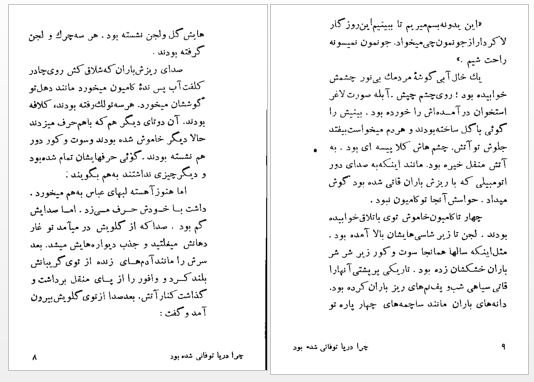 هایش گل ولجن نشسته بود . هر سه چرك و لجن
گرفته بودند .
صدای ریزش باران که شلاق کش روی چادر
کلفت آب پس ندهٔ کامیون میخورد مانند دهل تو
گوششان میخورد. هر سه تو لك رفته بودند، کلافه
بودند. آن دوتای دیگر هم که باهم حرف میزدند
حالا دیگر خاموش شده بودند وسوت و کور دور
هم نشسته بودند. گوئی حرفهایشان تمام شده بود
و دیگر چیزی نداشتند به هم بگویند :
اما هنوز آهسته لبهای عباس به هم میخورد .
داشت بــا خــودش حــرف مــی زد . امــا صدایش
گم بود . صدا که از گلویش در میآمد تو غار
دهانش میغلتید و جذب دیواره هایش میشد. بعد
سرش را مانند آدم هــای زنده از توی گریبانش
بلند کــرد و وافور را از پــای منقل برداشت و
گذاشت کنار آتش. بعد صدا از توی گلویش بیرون
آمد و گفت :
چرا دریا توفانی شده بود
۸
«این یدونه بسم میریم تا ببینیم! این روزگار
لاکردار از جونمون چی میخواد. جونمون نمیسونه
راحت شیم .»
یك خال آبی گوشهٔ مردمك بی نور چشمش
خوابیده بود ؛ روی چشم چپش . آبله صورت لاغر
استخوان درآمــده اش را خورده بود . بینیش را
گوئی با گل ساخته بودند و هردم میخواست بیفتد
جلوش تو آتش. چشم هاش کلاپیسه ای بود . به
آتش منقل خیره بود. مانند اینکه به صدای دور
اتومبیلی که با ریزش باران قاتی شده بود گوش
میداد . حواسش آنجا تو کامیون نبود .
چهار تا کامیون خاموش توی باتلاق خوابیده
بودند . لجن تا زیر شاسی هایشان بالا آمده بود .
مثل اینکه سالها همانجا سوت و کور زیر شر شر
باران خشکشان زده بود . تاریکی پرپشتی آنها را
قاتی سیاهی شب و یف نم های ریز باران کرده بود.
دانه های باران مانند ساچمه های چهار پاره تو
چرا دریا توفانی شده بود
۹